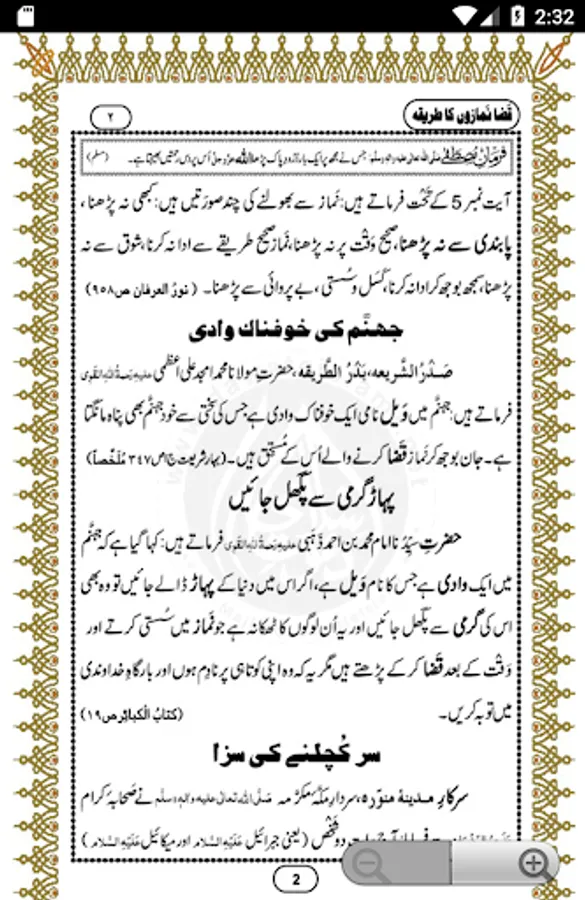 2:32
قَضا نَمازوں کا طریقہ
۲
فرمانِ مصطفٰے صلی اللہ تعالٰی علیہ واٰلہ وسلم: جس نے مجھ پر ایک بار دُرُود پاک پڑھا اللہ عزوجل اُس پر دس رحمتیں بھیجتا ہے۔ (مسلم)
آیت نمبر 5 کے تَحْت فرماتے ہیں: نَماز سے بھولنے کی چند صورَتیں ہیں: کبھی نہ پڑھنا،
پابندی سے نہ پڑھنا، صحیح وَقْت پر نہ پڑھنا، نَماز صحیح طریقے سے ادا نہ کرنا، شوق سے نہ
پڑھنا، سمجھ بوجھ کر ادا نہ کرنا، کَسل و سُستی، بے پروائی سے پڑھنا۔ (نورُ العرفان ص۹۵۸)
جہنَّم کی خوفناک وادی
صَدْرُ الشَّریعہ، بَدْرُ الطَّریقہ، حضرتِ مولانا محمد امجد علی اعظمی علیہ رحمۃُ اللہِ القَوِی
فرماتے ہیں: جہنَّم میں وَیل نامی ایک خوفناک وادی ہے جس کی سختی سے خود جہنَّم بھی پناہ مانگتا
ہے۔ جان بوجھ کر نَماز قَضا کرنے والے اُس کے مُستحق ہیں۔ (بہارِ شریعت ج۱ص۳۴۷ مُلَخَّصاً)
پہاڑ گرمی سے پگھل جائیں
حضرتِ سَیِّدُنا امام محمد بن احمد ذَہَبی علیہ رحمۃُ اللہِ القَوِی فرماتے ہیں: کہا گیا ہے کہ جہنَّم
میں ایک وادی ہے جس کا نام وَیل ہے، اگر اس میں دنیا کے پہاڑ ڈالے جائیں تو وہ بھی
اس کی گرمی سے پگھل جائیں اور یہ اُن لوگوں کا ٹھکانہ ہے جو نَماز میں سُستی کرتے اور
وَقْت کے بعد قَضا کر کے پڑھتے ہیں مگر یہ کہ وہ اپنی کوتاہی پر نادِم ہوں اور بارگاہِ خداوندی
میں توبہ کریں۔ (کتابُ الْکبائِر ص۱۹)
سر کُچلنے کی سزا
سرکارِ مدینۂ منوّرہ، سردارِ مکّۂ مکرّمہ صَلَّی اللہُ تعالٰی علیہ واٰلہٖ وسلَّم نے صَحابۂ کرام
دو شخص (یعنی جبرائیل عَلَیْہِ السَّلَام اور میکائیل عَلَیْہِ السَّلَام)
2